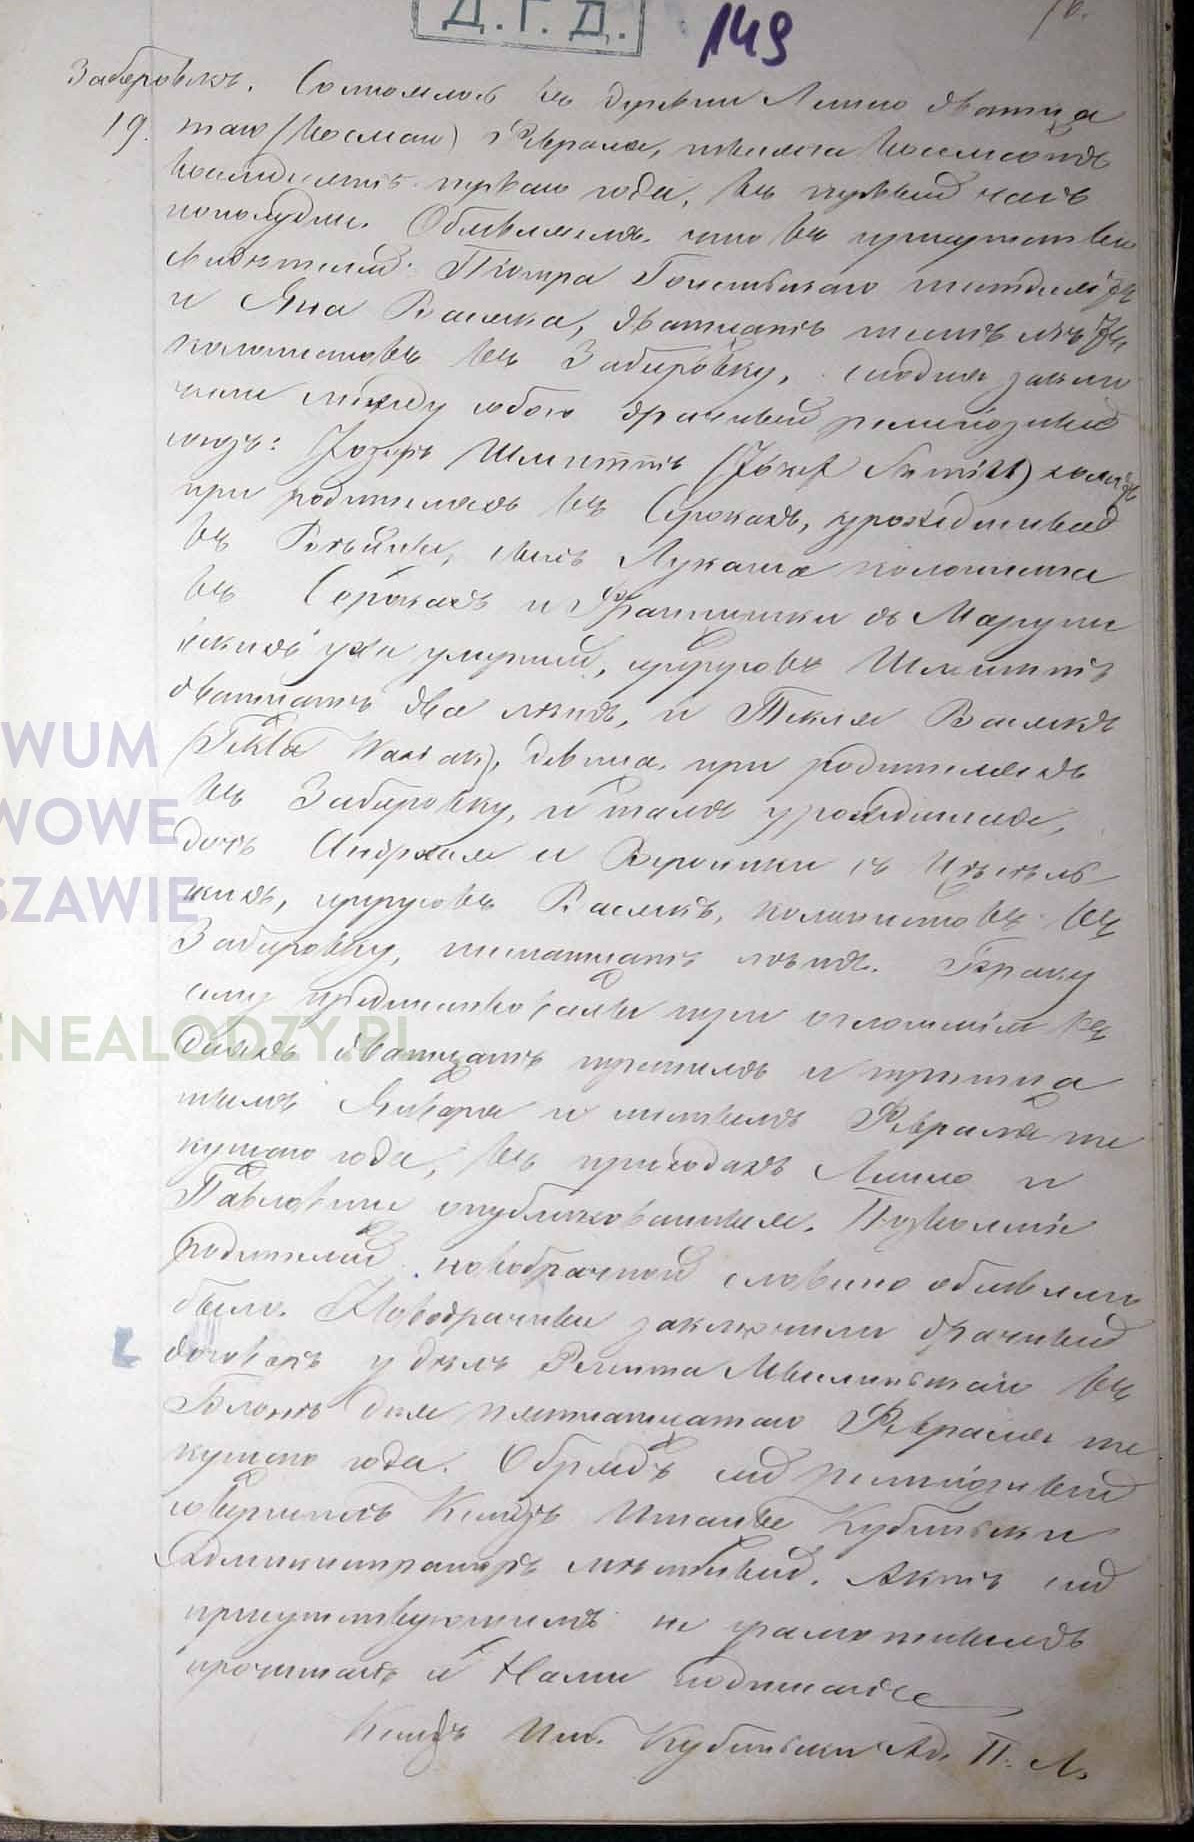 Д.Г.Д.
149
Заборовекъ. Состоялось въ деревни Лешно двадца
19. таго (Восмаго) Февраля, тысяча восемсотъ
восмдесятъ перваго года, въ первый часъ
пополудни. Объявляемъ, что въ присутствии
свидѣтелей Піотра
и Яна Васяка, двадцать шесть лѣтъ,
колонистовъ въ Заборовку, сего дня заклю
чили между собою брачный религіозный
союзъ: Юзефъ Шмиттъ (Józef Szmitt) холостъ
при родителяхъ въ Серокахъ, урожденный
въ сынъ Лукаша колониста
въ Серокахъ и Францишки съ
уже умершей, супруговъ Шмиттъ
двадцать два лѣтъ, и Текля Васякъ
(Tekla Wasiak), девица, при родителяхъ
въ Заборовку, и тамъ урожденная,
дочь Андржея и Вероники съ
супруговъ Васякъ, колонистовъ въ
Заборовку, лѣтъ. Браку
сему предшествовали три оглошенія въ
дняхъ двадцать третьемъ и тридца
томъ Января и шестымъ Февраля те
кущаго года, въ приходахъ Лешно и
Павловице опубликованныя. Позволеніе
родителей новобрачной словесно объявлено
было. Новобрачные заключили брачный
договоръ у дѣлъ Регента въ
Блоню дня пятнадцатаго Февраля те
кущаго года. Обрядъ сей религіозный
совершилъ Ксендзъ Игнаце Кубинськи
Администраторъ мѣстный. Актъ сей
присутствующимъ не грамотнымъ
прочитанъ и Нами подписанъ
Ксендзъ Игн. Кубинськи Ад. П. Л.
WUM
WOWE
SZAWIE
ENEALODZY.PL